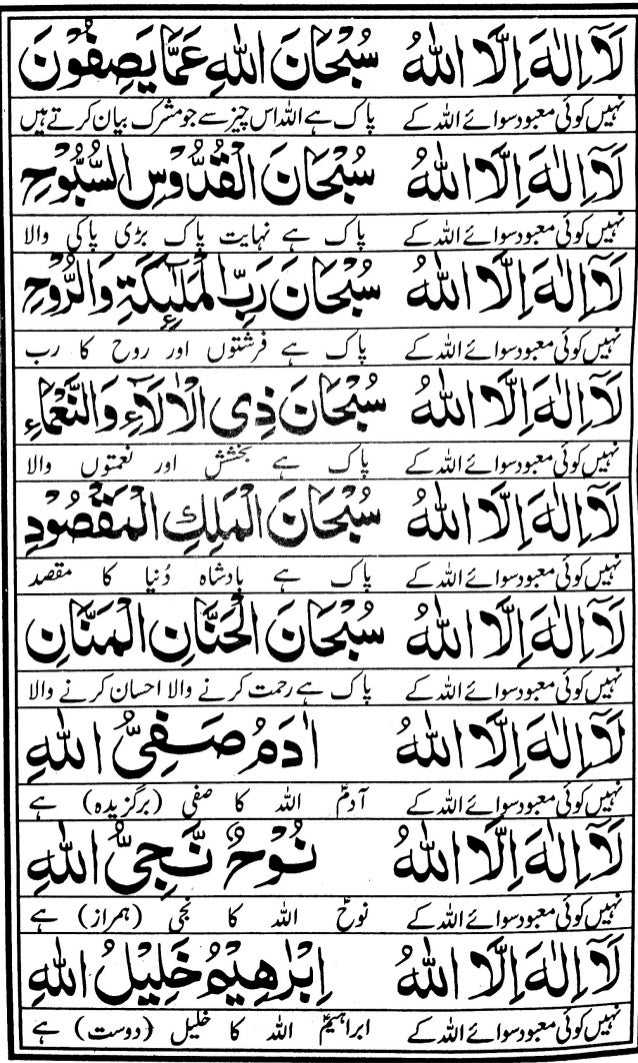 لَآ اِلٰهَ اِلَّا اللهُ سُبْحَانَ اللهِ عَمَّا يَصِفُوْنَ
نہیں کوئی معبود سوائے اللہ کے پاک ہے اللہ اس چیز سے جو مشرک بیان کرتے ہیں
لَآ اِلٰهَ اِلَّا اللهُ سُبْحَانَ الْقُدُّوْسِ السُّبُّوْحِ
نہیں کوئی معبود سوائے اللہ کے پاک ہے نہایت پاک بڑی پاکی والا
لَآ اِلٰهَ اِلَّا اللهُ سُبْحَانَ رَبِّ الْمَلٰٓئِكَةِ وَالرُّوْحِ
نہیں کوئی معبود سوائے اللہ کے پاک ہے فرشتوں اور روح کا رب
لَآ اِلٰهَ اِلَّا اللهُ سُبْحَانَ ذِى الْاٰلَآءِ وَالنَّعْمَآءِ
نہیں کوئی معبود سوائے اللہ کے پاک ہے بخشش اور نعمتوں والا
لَآ اِلٰهَ اِلَّا اللهُ سُبْحَانَ الْمَلِكِ الْمَقْصُوْدِ
نہیں کوئی معبود سوائے اللہ کے پاک ہے بادشاہ دُنیا کا مقصد
لَآ اِلٰهَ اِلَّا اللهُ سُبْحَانَ الْحَنَّانِ الْمَنَّانِ
نہیں کوئی معبود سوائے اللہ کے پاک ہے رحمت کرنے والا احسان کرنے والا
لَآ اِلٰهَ اِلَّا اللهُ اٰدَمُ صَفِىُّ اللهِ
نہیں کوئی معبود سوائے اللہ کے آدمؑ اللہ کا صفی (برگزیدہ) ہے
لَآ اِلٰهَ اِلَّا اللهُ نُوْحٌ نَّجِىُّ اللهِ
نہیں کوئی معبود سوائے اللہ کے نوحؑ اللہ کا نجی (ہمراز) ہے
لَآ اِلٰهَ اِلَّا اللهُ اِبْرٰهِيْمُ خَلِيْلُ اللهِ
نہیں کوئی معبود سوائے اللہ کے ابراہیمؑ اللہ کا خلیل (دوست) ہے